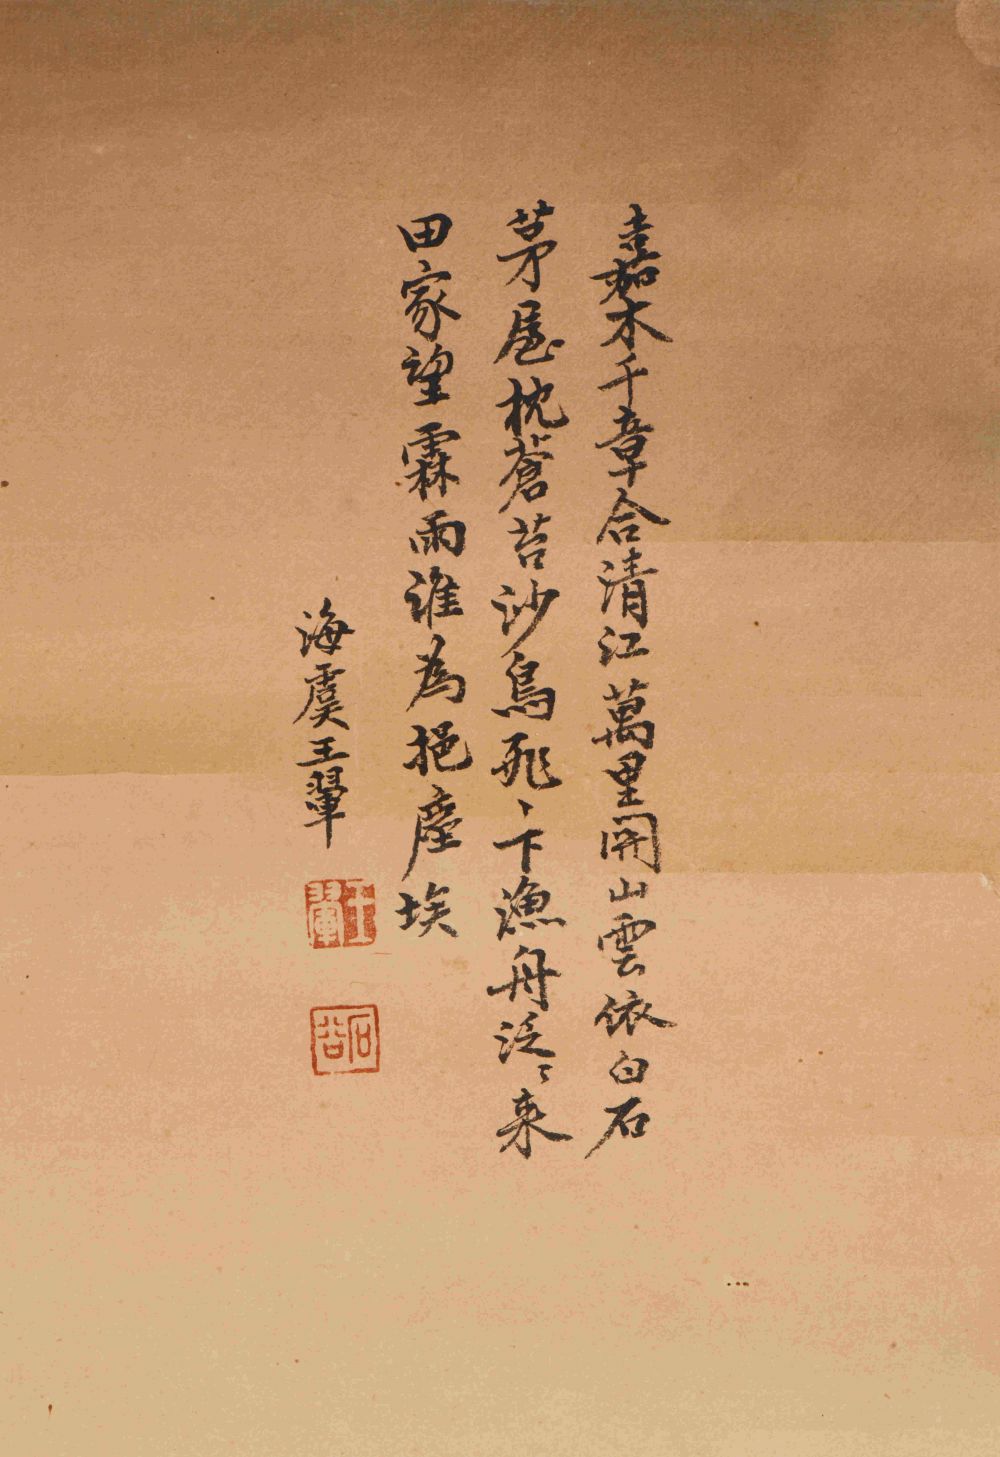 嘉木千章合清江萬里開山雲依白石
茅屋枕蒼苔沙鳥飛〻下漁舟泛〻来
田家望霖雨誰為挹塵埃
海虞王翬
王翬
石谷